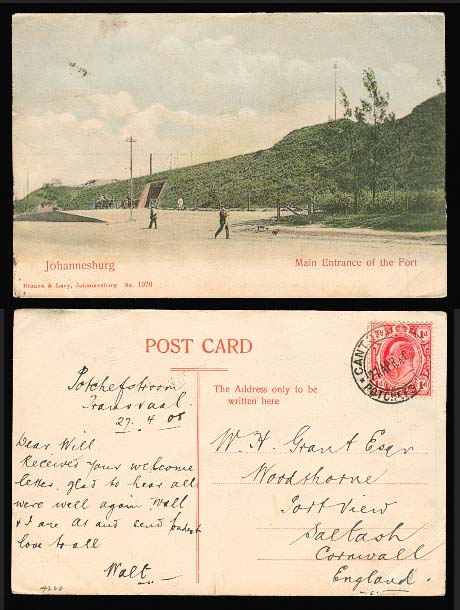 Johannesburg
Main Entrance of the Fort
Braune & Levy, Johannesburg No. 1076
POST CARD
The Address only to be
written here
Potchefstroom
Transvaal
27. 4 08
Dear Will
Received your welcome
letter. glad to hear all
were well again
& I are A1 and send fondest
love to all
Walt
4260
W. H. Grant Esqr
Woodthorne
Port View
Saltash
Cornwall
England.